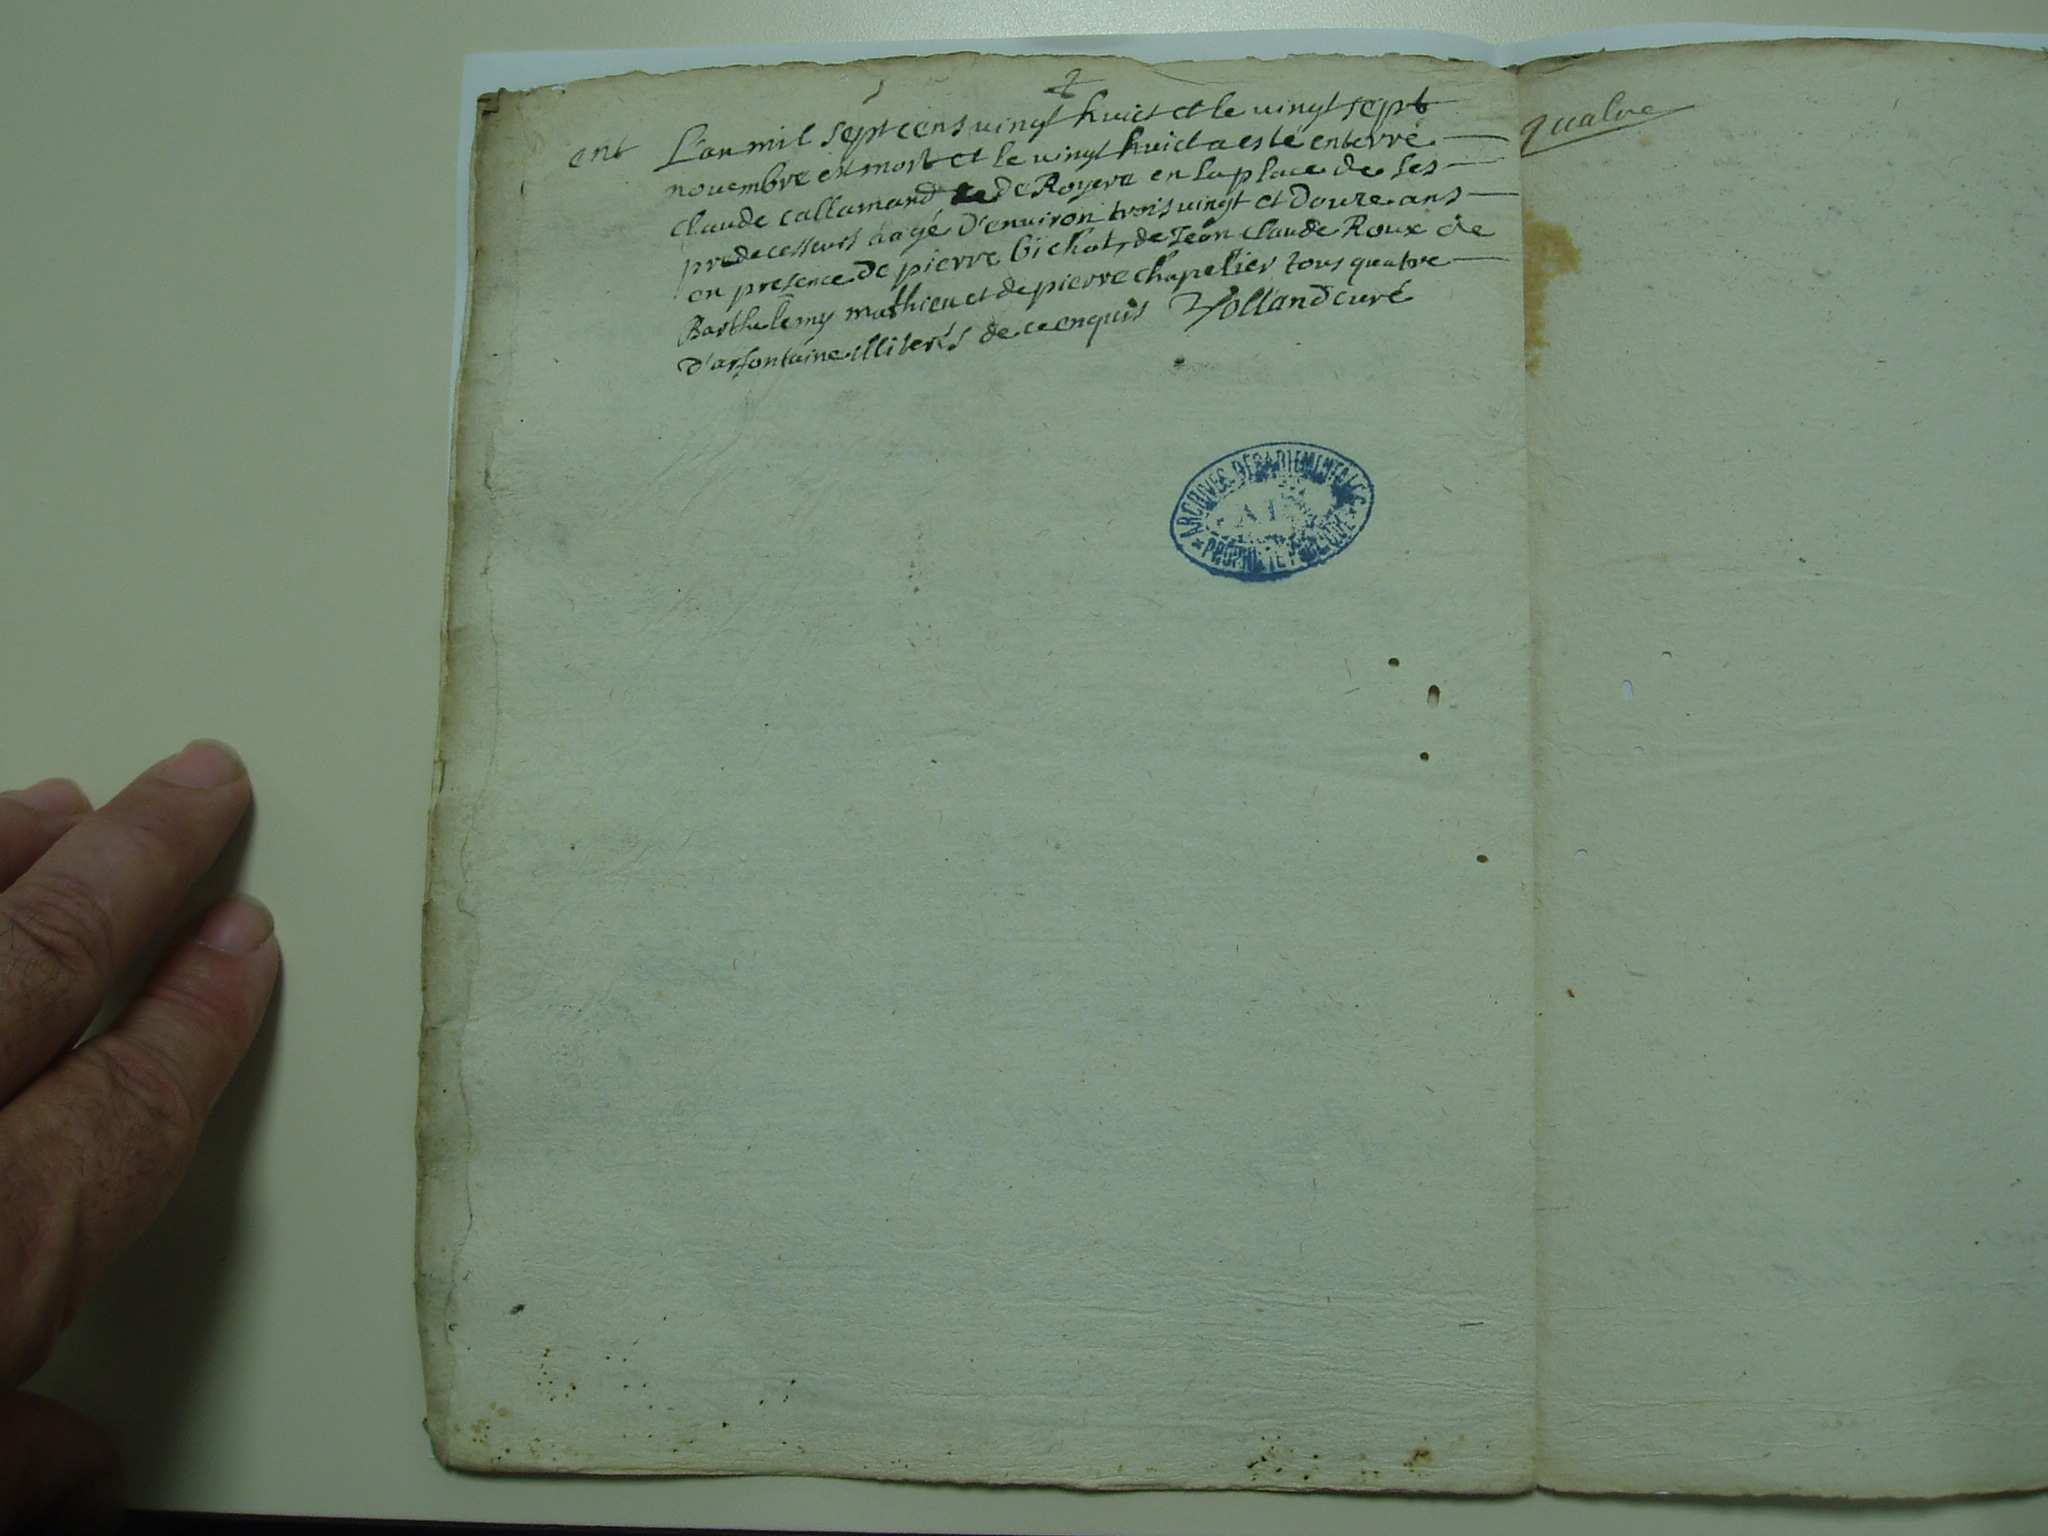 2
ent L'an mil sept cens vingt huict et le vingt sept
novembre est mort et le vingt huict a esté enterré
Claude Callamand de Royere en la place de ses
predecesseurs aagé d'environ trois vingt et douze ans
en presence de pierre bichat, de Jean Claude Roux de
Barthelemy mathieu et de pierre chapelier tous quatre
d'arfontaine illiterés de ce enquis Holland curé
ARCHIVES DEPARTEMENTALES
AIN
PROPRIETE PUBLIQUE
quatre